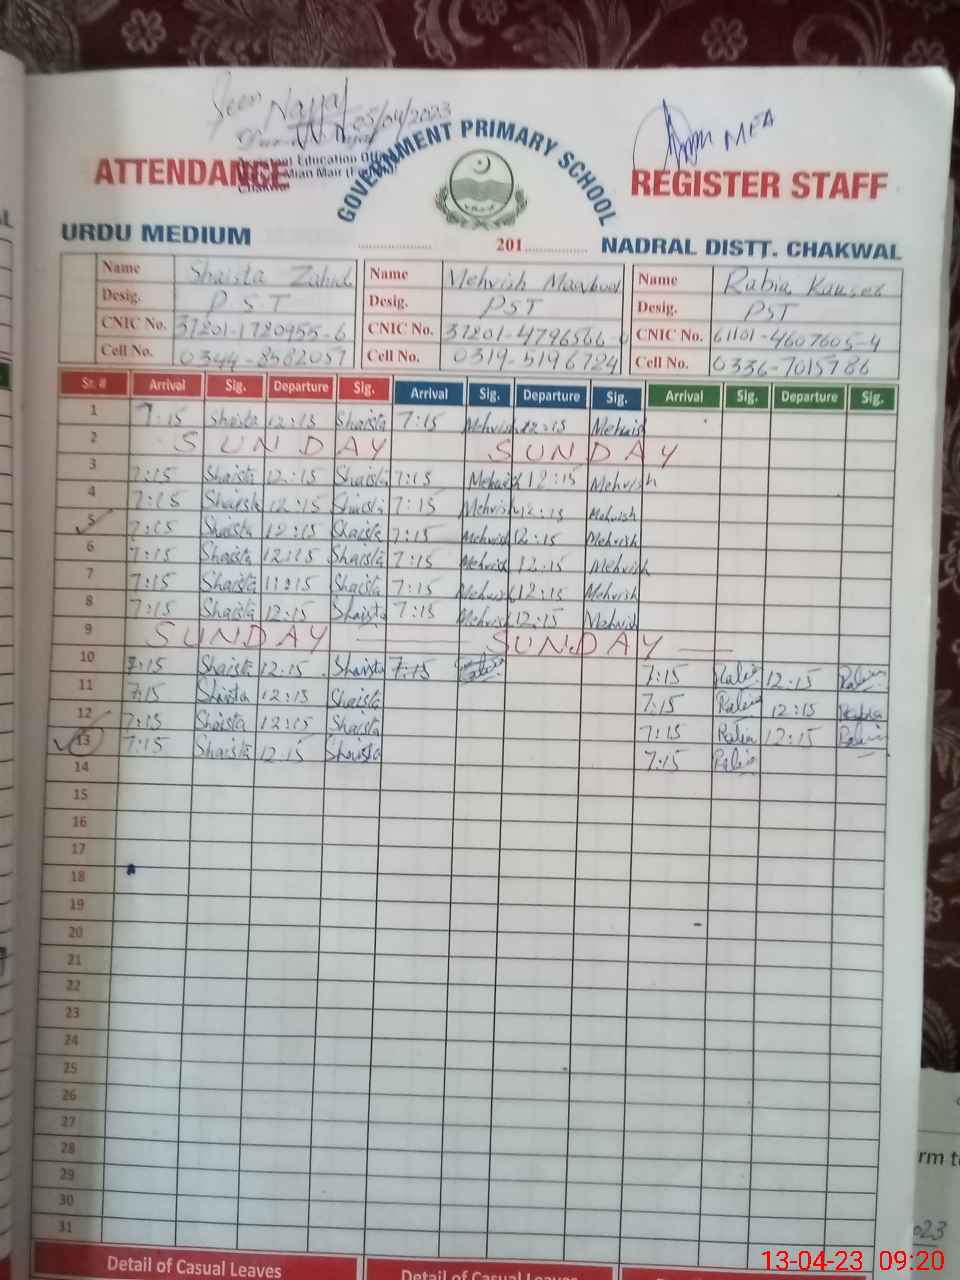 Seen
05/04/2023
MEA
GOVERNMENT PRIMARY SCHOOL
ATTENDANCE REGISTER STAFF
Chakwal
URDU MEDIUM 201 NADRAL DISTT. CHAKWAL
Name Shaista Zahid Name Mehvish Name Rabia Kausar
Desig. PST Desig. PST Desig. PST
CNIC No. 37201-1720955-6 CNIC No. 37201-4796566-0 CNIC No. 61101-4607605-4
Cell No. 0344-8582057 Cell No. 0319-5196724 Cell No. 0336-7015786
Sr. # Arrival Sig. Departure Sig. Arrival Sig. Departure Sig. Arrival Sig. Departure Sig.
1 7:15 Shaista 12:15 Shaista 7:15 Mehvish 12:15 Mehvish
2 SUNDAY SUNDAY
3 7:15 Shaista 12:15 Shaista 7:15 Mehvish 12:15 Mehvish
4 7:15 Shaista 12:15 Shaista 7:15 Mehvish 12:15 Mehvish
5 7:15 Shaista 12:15 Shaista 7:15 Mehvish 12:15 Mehvish
6 7:15 Shaista 12:15 Shaista 7:15 Mehvish 12:15 Mehvish
7 7:15 Shaista 12:15 Shaista 7:15 Mehvish 12:15 Mehvish
8 7:15 Shaista 12:15 Shaista 7:15 Mehvish 12:15 Mehvish
9 SUNDAY SUNDAY
10 7:15 Shaista 12:15 Shaista 7:15 7:15 Rabia 12:15 Rabia
11 7:15 Shaista 12:15 Shaista 7:15 Rabia 12:15 Rabia
12 7:15 Shaista 12:15 Shaista 7:15 Rabia 12:15 Rabia
13 7:15 Shaista 12:15 Shaista 7:15 Rabia
14
15
16
17
18
19
20
21
22
23
24
25
26
27
28
29
30
31
Detail of Casual Leaves Detail of Casual Leaves
13-04-23 09:20